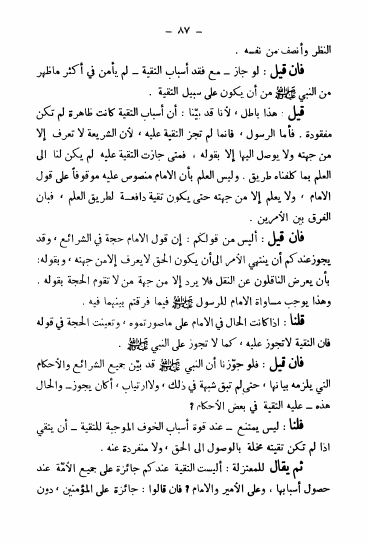 – ٨٧ –
النظر وأنصف من نفسه .
فان قيل : لو جاز ــ مع فقد أسباب التقية ــ لم يأمن في أكثر ماظهر
من النبي ﷺ من أن يكون على سبيل التقية .
قيل : هذا باطل ، لأنا قد بيّنا : أن أسباب التقية كانت ظاهرة لم تكن
مفقودة . فأما الرسول ، فانما لم تجز التقية عليه ، لأن الشريعة لا تعرف إلا
من جهته ولا يوصل اليها إلا بقوله ، فمتى جازت التقية عليه لم يكن لنا الى
العلم بما كلفناه طريق . وليس العلم بأن الامام منصوص عليه موقوفاً على قول
الامام ، ولا يعلم إلا من جهته حتى يكون تقية دافعة لطريق العلم ، فبان
الفرق بين الأمرين .
فان قيل : أليس من قولكم : إن قول الامام حجة في الشرائع ، وقد
يجوز عندكم أن ينتهي الأمر الى أن يكون الحق لايعرف إلا من جهته ، وبقوله:
بأن يعرض الناقلون عن النقل فلا يرد إلا من جهة من لا تقوم الحجة بقوله .
وهذا يوجب مساواة الامام للرسول ﷺ فيما فرقتم بينهما فيه .
قلنا : اذا كانت الحال في الامام على ماصورتموه ، وتعينت الحجة في قوله
فان التقية لاتجوز عليه ، كما لا تجوز على النبي ﷺ .
فان قيل : فلو جوّزنا أن النبي ﷺ قد بيّن جميع الشرائع والأحكام
التي يلزمه بيانها ، حتى لم تبق شبهة في ذلك ، ولا ارتياب ، أكان يجوز ــ والحال
هذه ــ عليه التقية في بعض الأحكام ؟
قلنا : ليس يمتنع ــ عند قوة أسباب الخوف الموجبة للتقية ــ أن يتقي
اذا لم تكن تقيته مخلة بالوصول الى الحق ، ولا منفردة عنه .
ثم يقال للمعتزلة : أليست التقية عندكم جائزة على جميع الأمّة عند
حصول أسبابها ، وعلى الأمير والامام ؟ فان قالوا : جائزة على المؤمنين ، دون